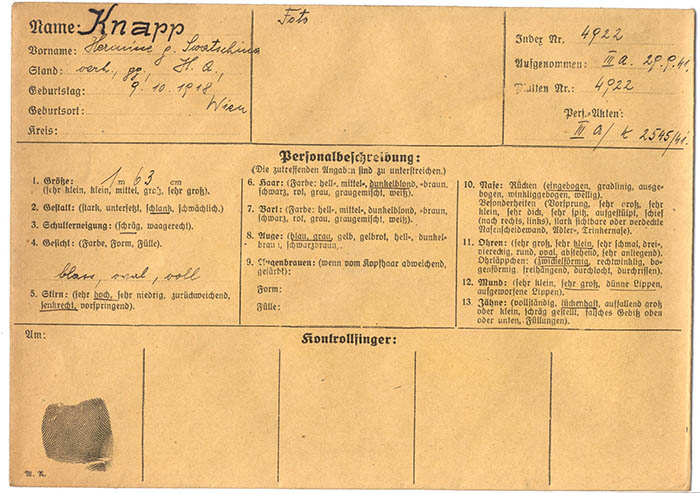 Name: Knapp
Vorname: Hermine g. Swatschina
Stand: verh., gg., H. A.,
Geburtstag: 9. 10. 1918,
Geburtsort: Wien
Kreis:
Foto
Index Nr. 4922
Aufgenommen: III A. 29.9.41
Platten Nr. 4922
Pers.-Akten:
III A/ K 2545/41.
Personalbeschreibung:
(Die zutreffenden Angaben sind zu unterstreichen.)
1. Größe: 1 m 63 cm
(sehr klein, klein, mittel, groß, sehr groß).
2. Gestalt: (stark, untersetzt, schlank, schwächlich).
3. Schulterneigung: (schräg, waagerecht).
4. Gesicht: (Farbe, Form, Fülle).
blass, oval, voll
5. Stirn: (sehr hoch, sehr niedrig, zurückweichend,
senkrecht, vorspringend).
6. Haar: (Farbe: hell-, mittel-, dunkelblond, -braun,
schwarz, rot, grau, graugemischt, weiß).
7. Bart: (Farbe: hell-, mittel-, dunkelblond, -braun,
schwarz, rot, grau, graugemischt, weiß).
8. Auge: (blau, grau, gelb, gelbrot, hell-, dunkel-
braun, schwarzbraun.
9. Augenbrauen: (wenn vom Kopfhaar abweichend,
gefärbt):
Form:
Fülle:
10. Nase: Rücken (eingebogen, gradlinig, ausge-
bogen, winkliggebogen, wellig).
Besonderheiten (Vorsprung, sehr groß, sehr
klein, sehr dick, sehr spitz, aufgestülpt, schief
(nach rechts, links), stark sichtbare oder verdeckte
Nasenscheidewand, Adler-, Trinkernase).
11. Ohren: (sehr groß, sehr klein, sehr schmal, drei-,
viereckig, rund, oval, abstehend, sehr anliegend).
Ohrläppchen: (zwickelförmig, rechtwinklig, bo-
genförmig, freihängend, durchlocht, durchrissen).
12. Mund: (sehr klein, sehr groß, dünne Lippen,
aufgeworfene Lippen).
13. Zähne: (vollständig, lückenhaft, auffallend groß
oder klein, schräg gestellt, falsches Gebiß oben
oder unten, Füllungen).
Am:
Kontrollfinger:
M. R.